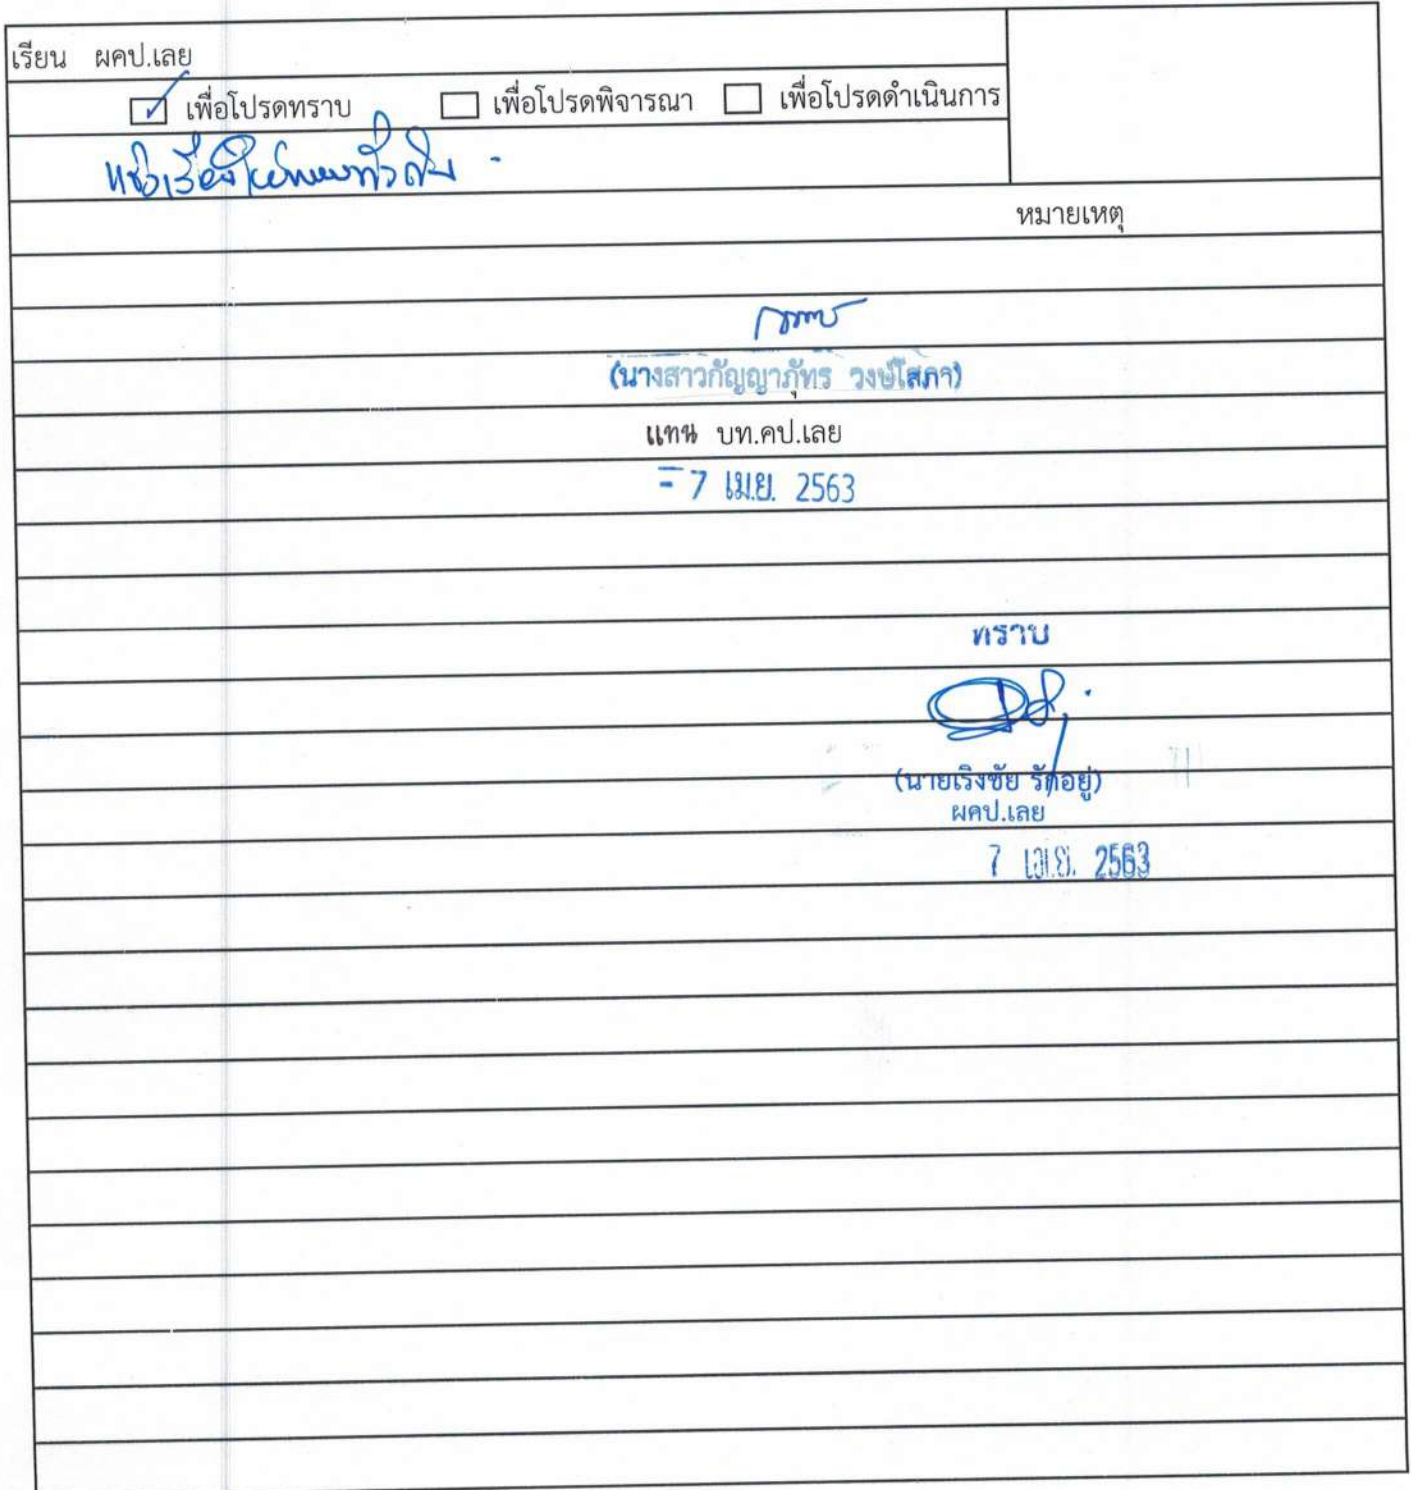 เรียน ผคป.เลย
เพื่อโปรดทราบ เพื่อโปรดพิจารณา เพื่อโปรดดำเนินการ
หมายเหตุ
(นางสาวกัญญาภัทร วงษ์โสภา)
แทน บท.คป.เลย
- 7 เม.ย. 2563
ทราบ
(นายเริงชัย รักอยู่)
ผคป.เลย
7 เม.ย. 2563